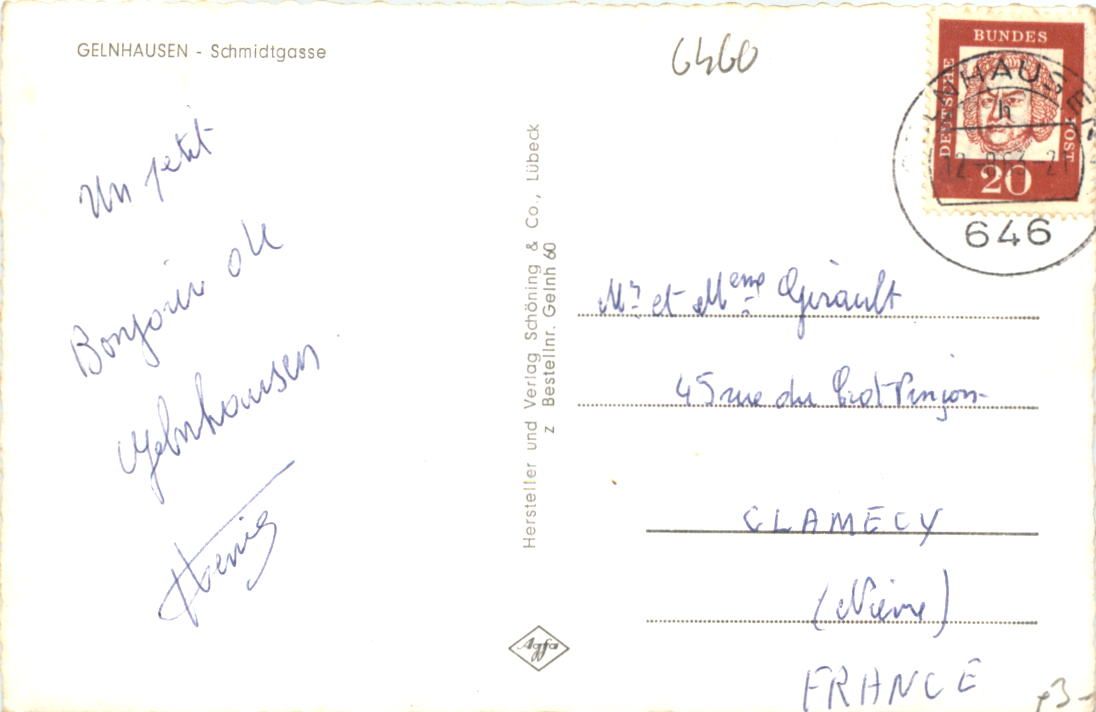 GELNHAUSEN - Schmidtgasse
6460
Un petit
Bonjour de
Gelnhausen
Hersteller und Verlag Schöning & Co., Lübeck
z Bestellnr. Gelnh 60
DEUTSCHE
BUNDES
POST
20
LNHAUSEN
h
12.-8.63-21
646
Mr et Meme Girault
45 rue du Crot Pinçon
CLAMECY
(Nièvre)
FRANCE
Agfa